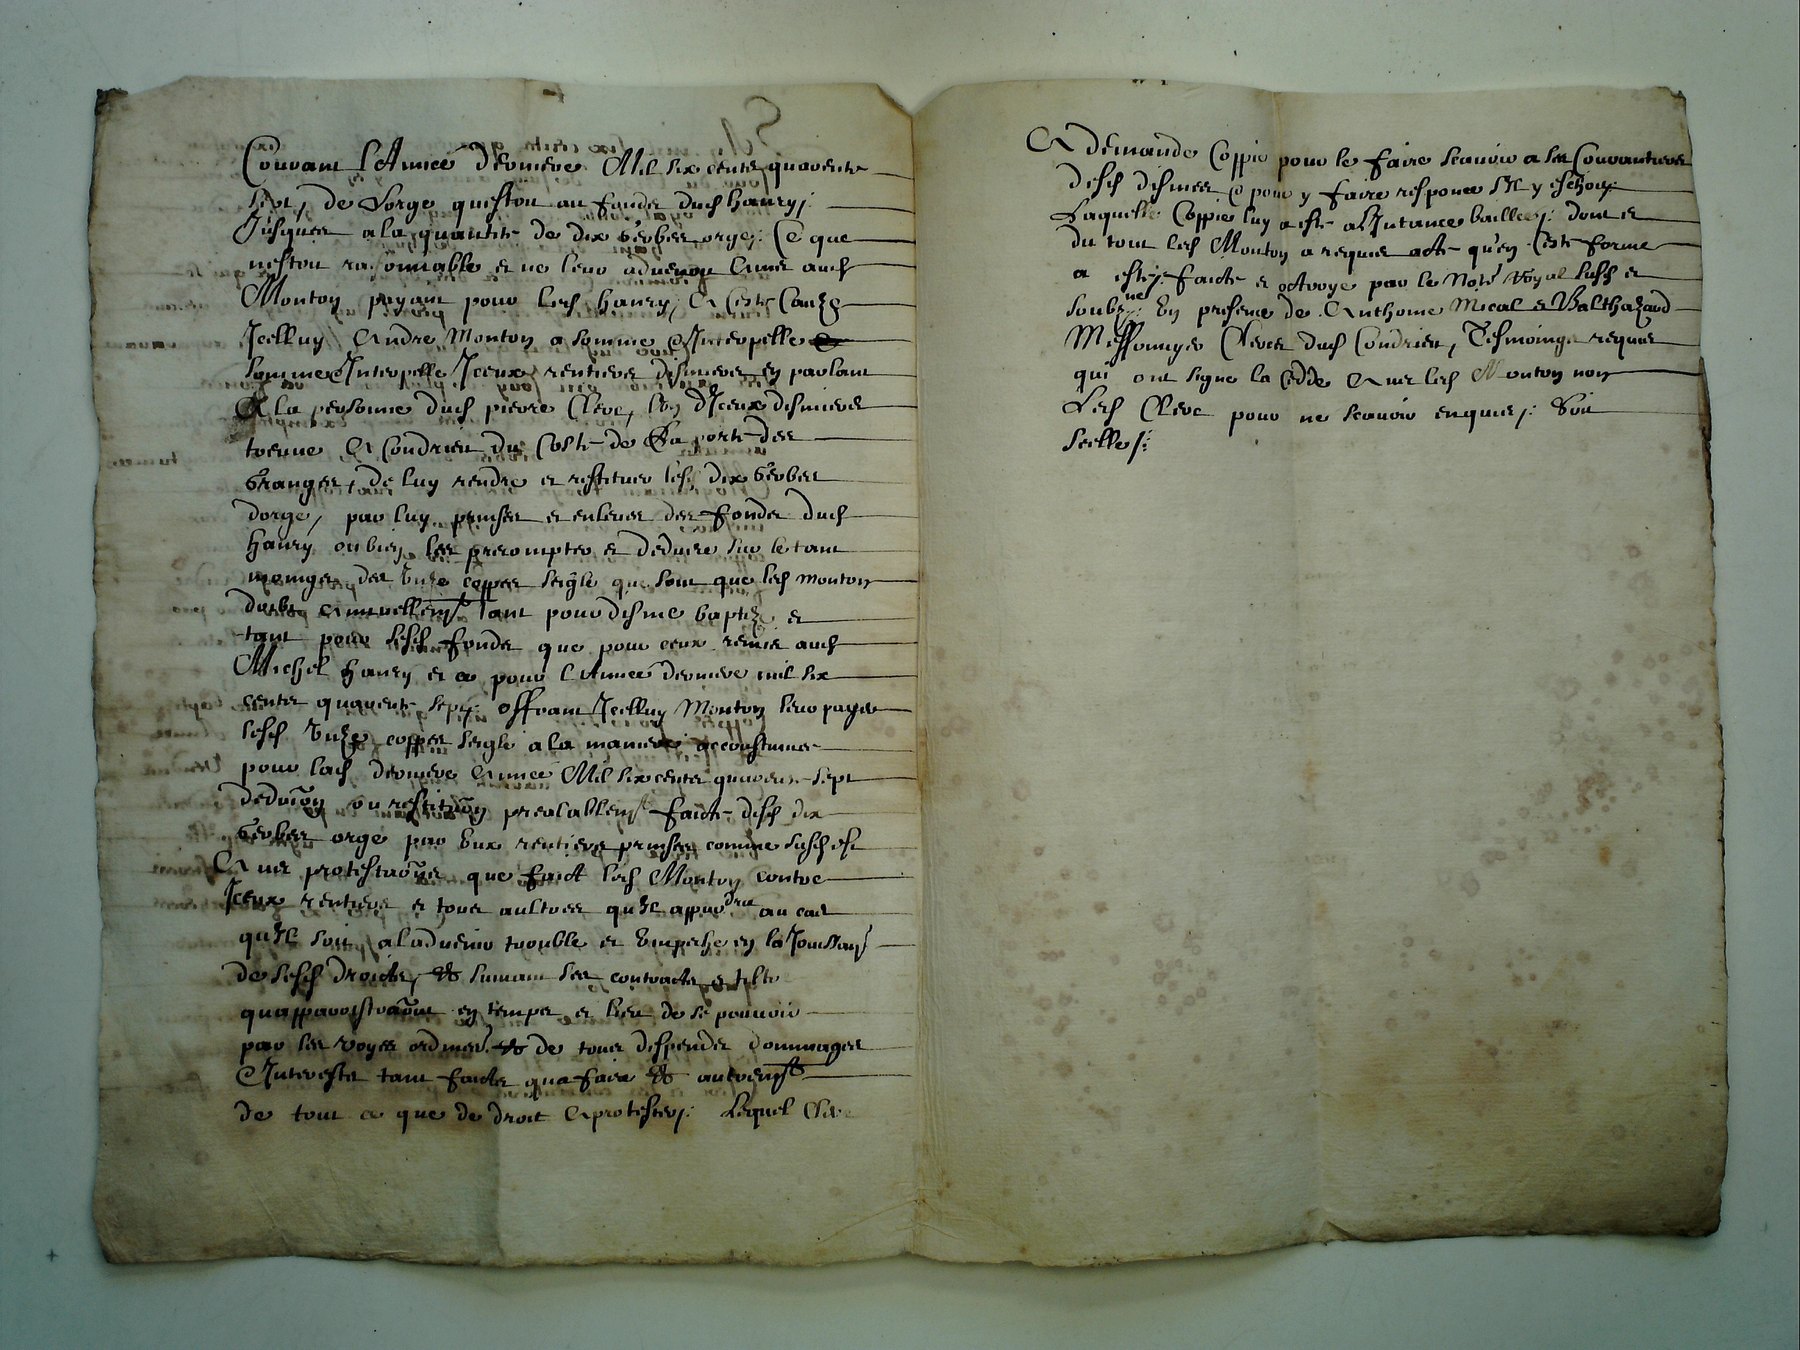 Courant l'Annee derniere Mil six centz quarente
sept, de Lorge questoit au fondz dud Hanry,
Jusques a la quantite de dix Gerbes orge, Ce que
nestoit raisonnable et ne leur advenoit Avec aud
Monton payant pour led Hanry, A Ceste Cauze
Icelluy Andre Monton a somme & Interpelle
somme & Interpelle Iceux rentiers dismiers en parlant
A la personne dud pierre Clerc, lun d'Iceux dismiers
treuve A Condrieu du Coste de la porte des
Granges, de luy rendre et restituer lesd dix Gerbes
dorge, par luy prinses et enlevees des fondz dud
Hanry ou bien les precompter et deduire sur le tant
moings des unze coppes seigle que sont que led Monton
doibt Annuellemt tant pour disme baptize et
tant pour sesd fondz que pour ceux remis aud
Michel Hanry et ce pour l'Annee derniere mil six
centz quarente sept, offrant Icelluy Monton leur payer
lesd unze coppes seigle a la maniere accoustumee
pour lad derniere Annee Mil six centz quarente sept
deduction ou restitution prealablemt faicte desd dix
Gerbes orge par eux rentiers prinses comme susd est
Avec protestations que faict led Monton contre
Iceux rentiers et tous aultres quil appardra au cas
quil soit a ladvenir trouble et empeche en la Jouissan
de sesd droictz, & suivant ses contractz et tiltr
quapparoistront en temps et lieu de se pouvoir
par les voyes ordinres & de tous despendz dommages
Interestz tant faictz qua faire & autremt
de tout ce que de droit A protester, Lequel Clerc
A demande Coppie pour le faire scavoir a ses Courantiers
desd dismes & pour y faire responce sil y eschoit
Laquelle Coppie luy a este a l'Instance baillee, dont et
du tout led Monton a requis acte qu'en Ceste forme
a este faicte et octroye par le Notre Royal susd et
soubzne, En presence de Anthoine Micol et Balthazard
Messonnyer Clercs dud Condrieu, Tesmoings requis
qui ont signe la cedde Avec led Monton non
Led Clerc pour ne scavoir enquis, Soit
scelle,